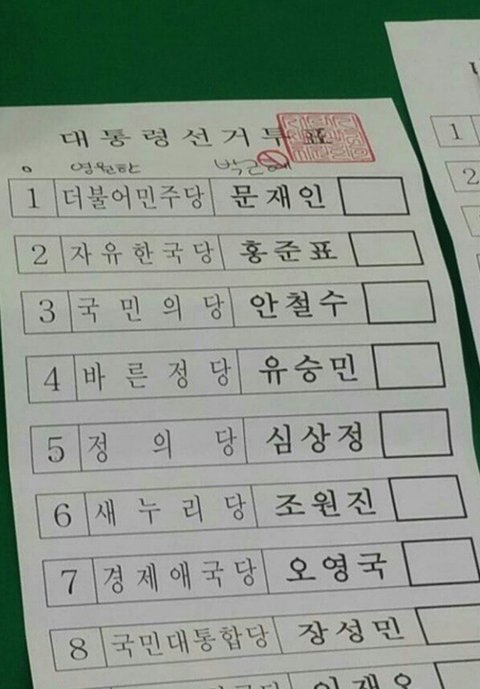 대통령선거투표
0 영원한 박근혜
1 더불어민주당 문재인
2 자유한국당 홍준표
3 국민의당 안철수
4 바른정당 유승민
5 정의당 심상정
6 새누리당 조원진
7 경제애국당 오영국
8 국민대통합당 장성민
1
2